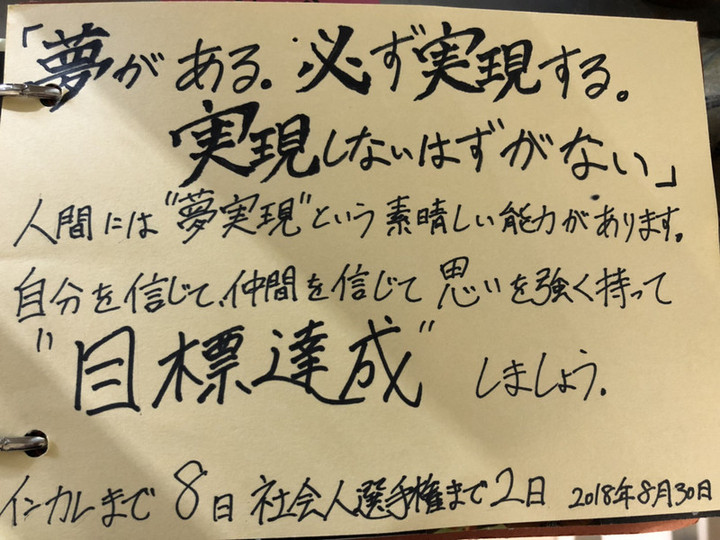 「夢がある。必ず実現する。
実現しないはずがない」
人間には"夢実現"という素晴しい能力があります。
自分を信じて、仲間を信じて思いを強く持って
"目標達成"しましょう。
インカレまで8日 社会人選手権まで2日 2018年8月30日